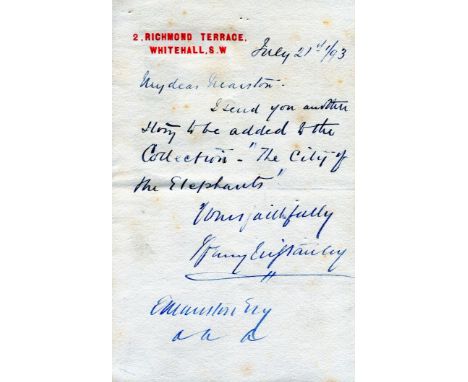 2. RICHMOND TERRACE,
WHITEHALL, S.W
July 21st/93
My dear Marston.
I send you another
story to be added to the
Collection - "The City of
the Elephants"
Yours faithfully
Henry M Stanley
E Marston Esq